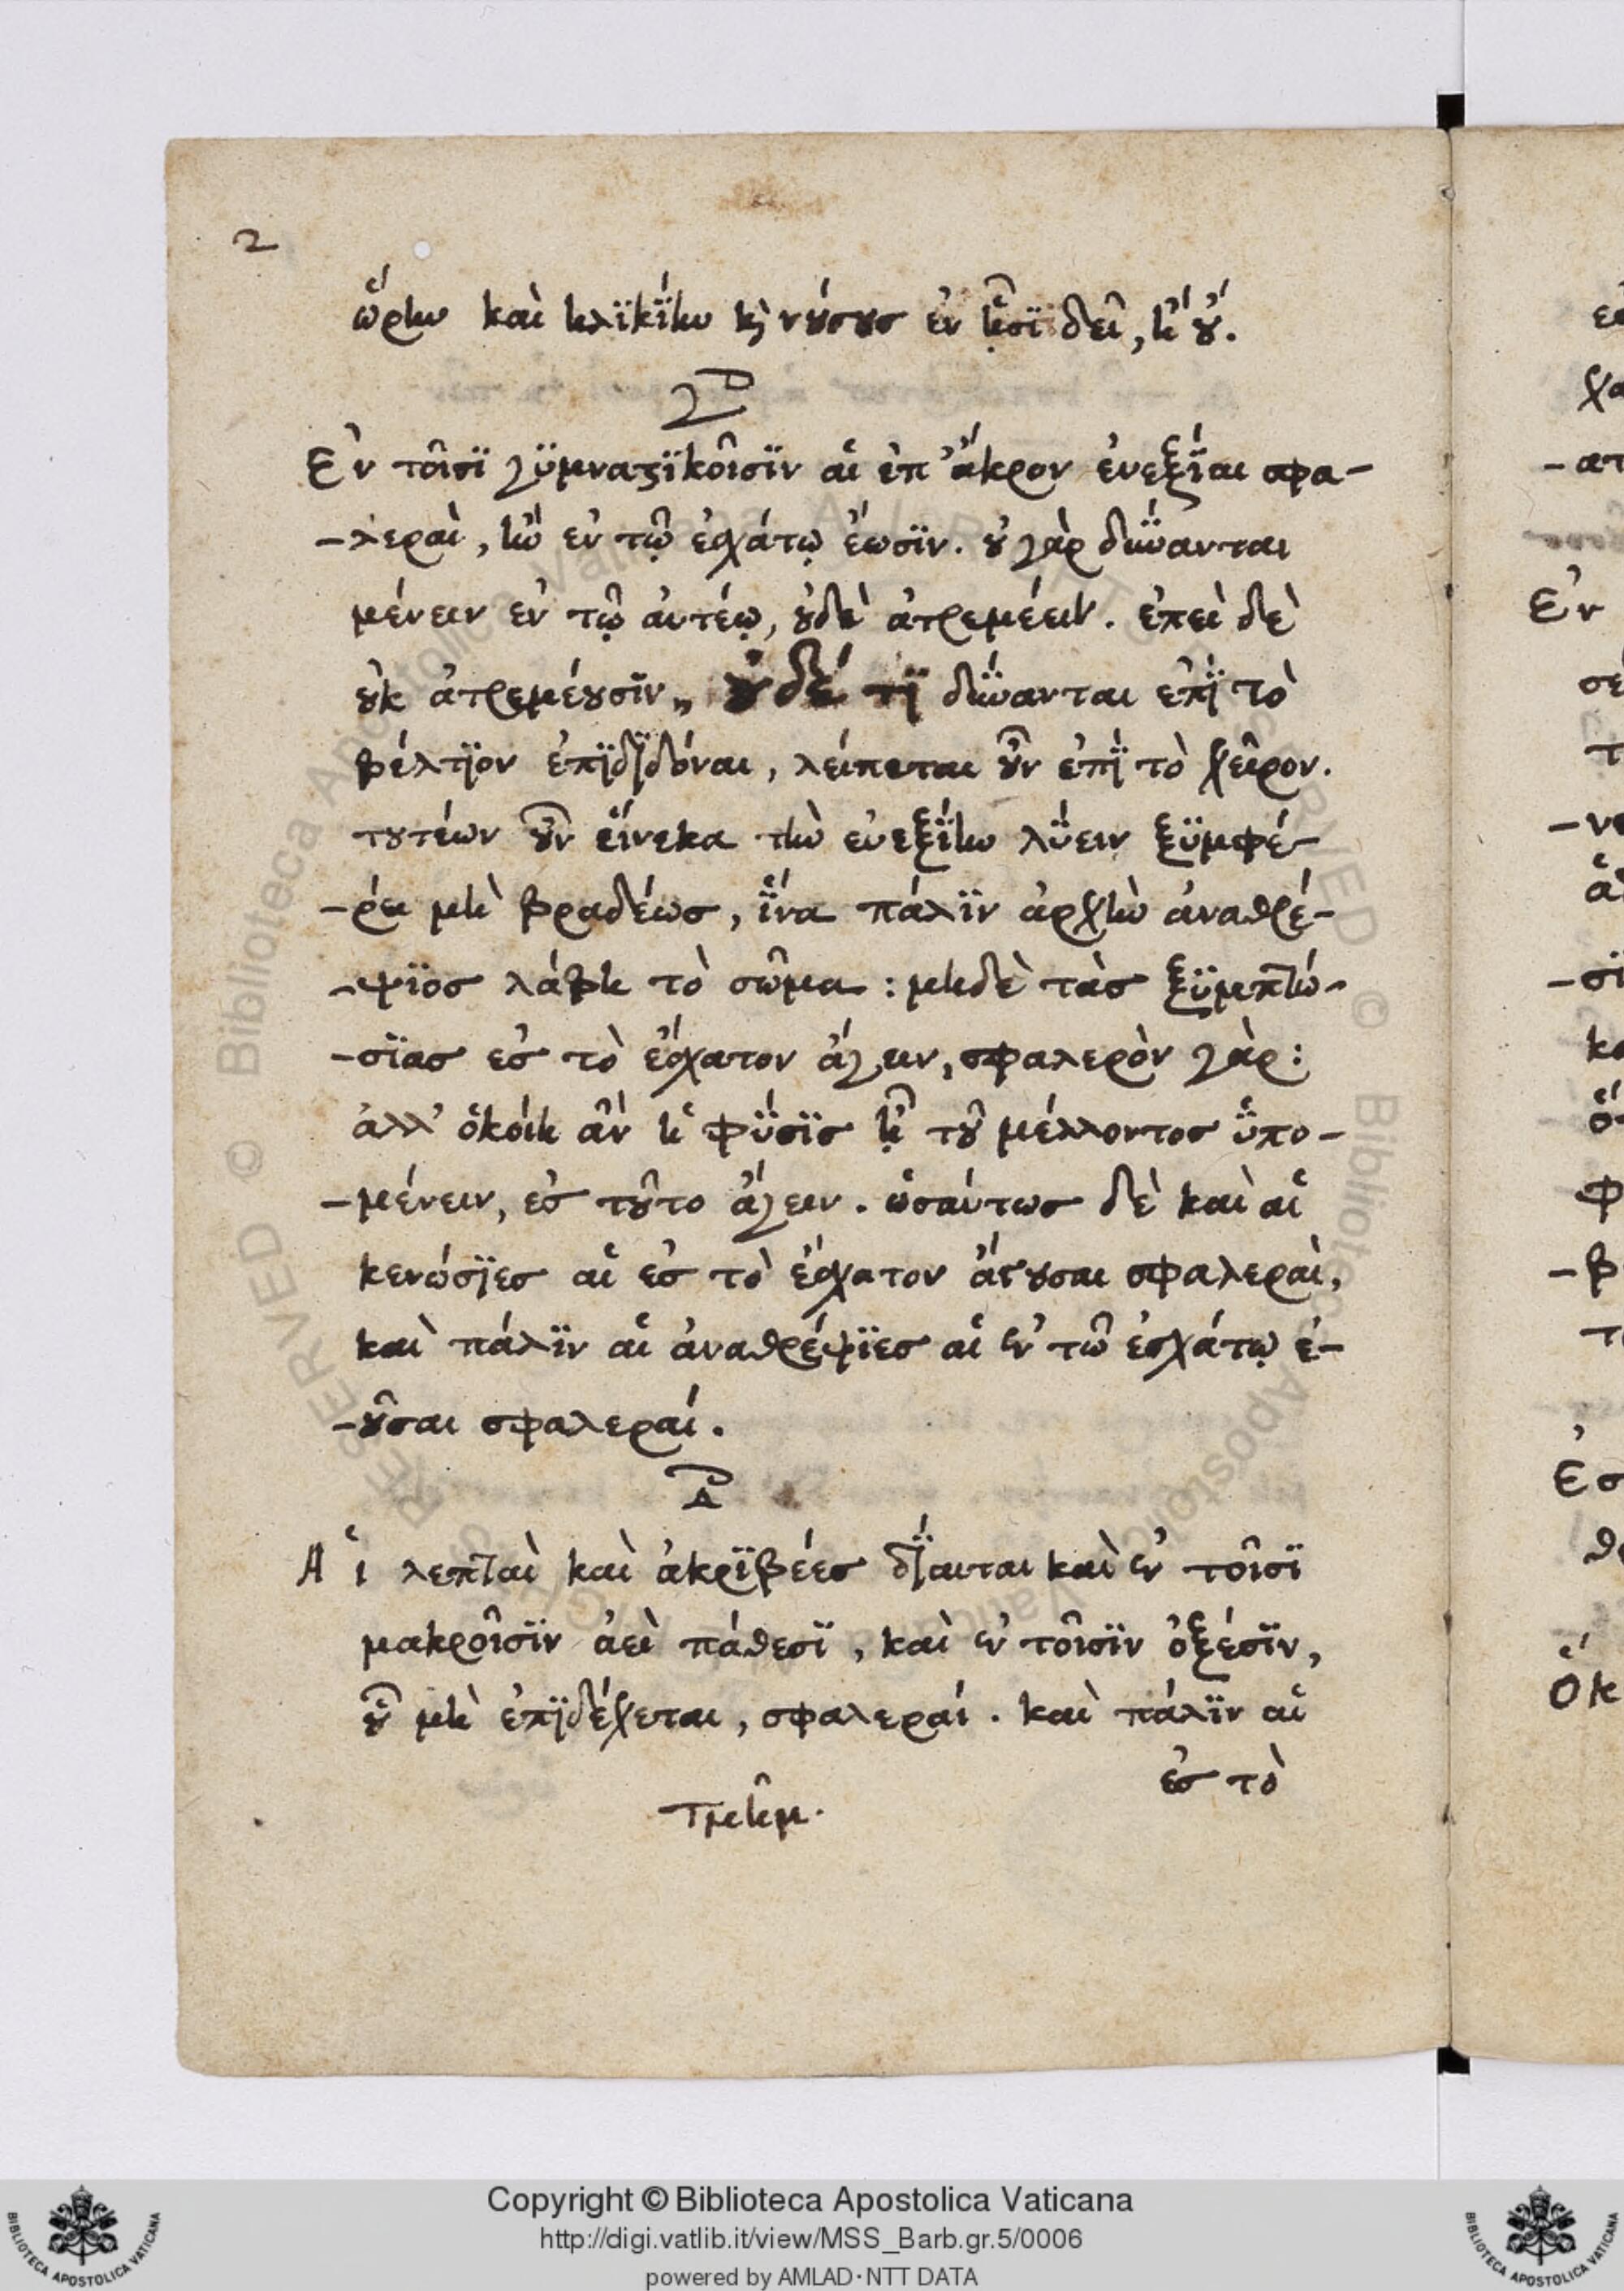 2
ὥρην καὶ ἡλϊκΐην κ̀ νούσους ἐν ᾗσϊ δεῖ, ἢ οὔ.
Γ
Ἐν τοῖσϊ γϋμναστϊκοῖσϊν αἱ ἐπ' ἄκρον ἐυεξΐαι σφα-
-λεραὶ, ἢν ἐν τῷ ἐσχάτῳ ἔωσϊν. οὐ γὰρ δΰνανται
μένειν ἐν τῷ ἀυτέῳ, οὐδὲ ἀτρεμέειν. ἐπεὶ δὲ
οὐκ ἀτρεμέουσϊν,, οὐδέ τϊ δΰνανται ἐπῒ τὸ
βέλτϊον ἐπϊδϊδόναι, λείπεται οὖν ἐπῒ τὸ χεῖρον.
τουτέων οὖν εἵνεκα τὴν εὐεξΐην λΰειν ξϋμφέ-
-ρει μὴ βραδέως, ἵνα πάλϊν ἀρχὴν ἀναθρέ-
-ψϊος λάβη τὸ σῶμα : μηδὲ τὰς ξϋμπτώ-
-σϊας ἐς τὸ ἔσχατον ἄγειν, σφαλερὸν γὰρ:
ἀλλ' ὁκοίη ἂν ἡ φΰσϊς ᾖ τοῦ μέλλοντος ὑπο-
-μένειν, ἐς τοῦτο ἄγειν. ὡσαύτως δὲ καὶ αἱ
κενώσϊες αἱ ἐς τὸ ἔσχατον ἄγουσαι σφαλεραὶ,
καὶ πάλϊν αἱ ἀναθρέψϊες αἱ ἐν τῶ ἐσχάτῳ ἐ-
-οῦσαι σφαλεραί.
Δ
Αἱ λεπταὶ καὶ ἀκρϊβέες δΐαιται καὶ ἐν τοῖσϊ
μακροῖσϊν ἀεὶ πάθεσϊ, καὶ ἐν τοῖσϊν ὀξέσϊν,
οὗ μὴ ἐπϊδέχεται, σφαλεραί. καὶ πάλϊν αἱ
ἐς τὸ
Τμῆμ.
Copyright © Biblioteca Apostolica Vaticana
http://digi.vatlib.it/view/MSS_Barb.gr.5/0006
powered by AMLAD·NTT DATA